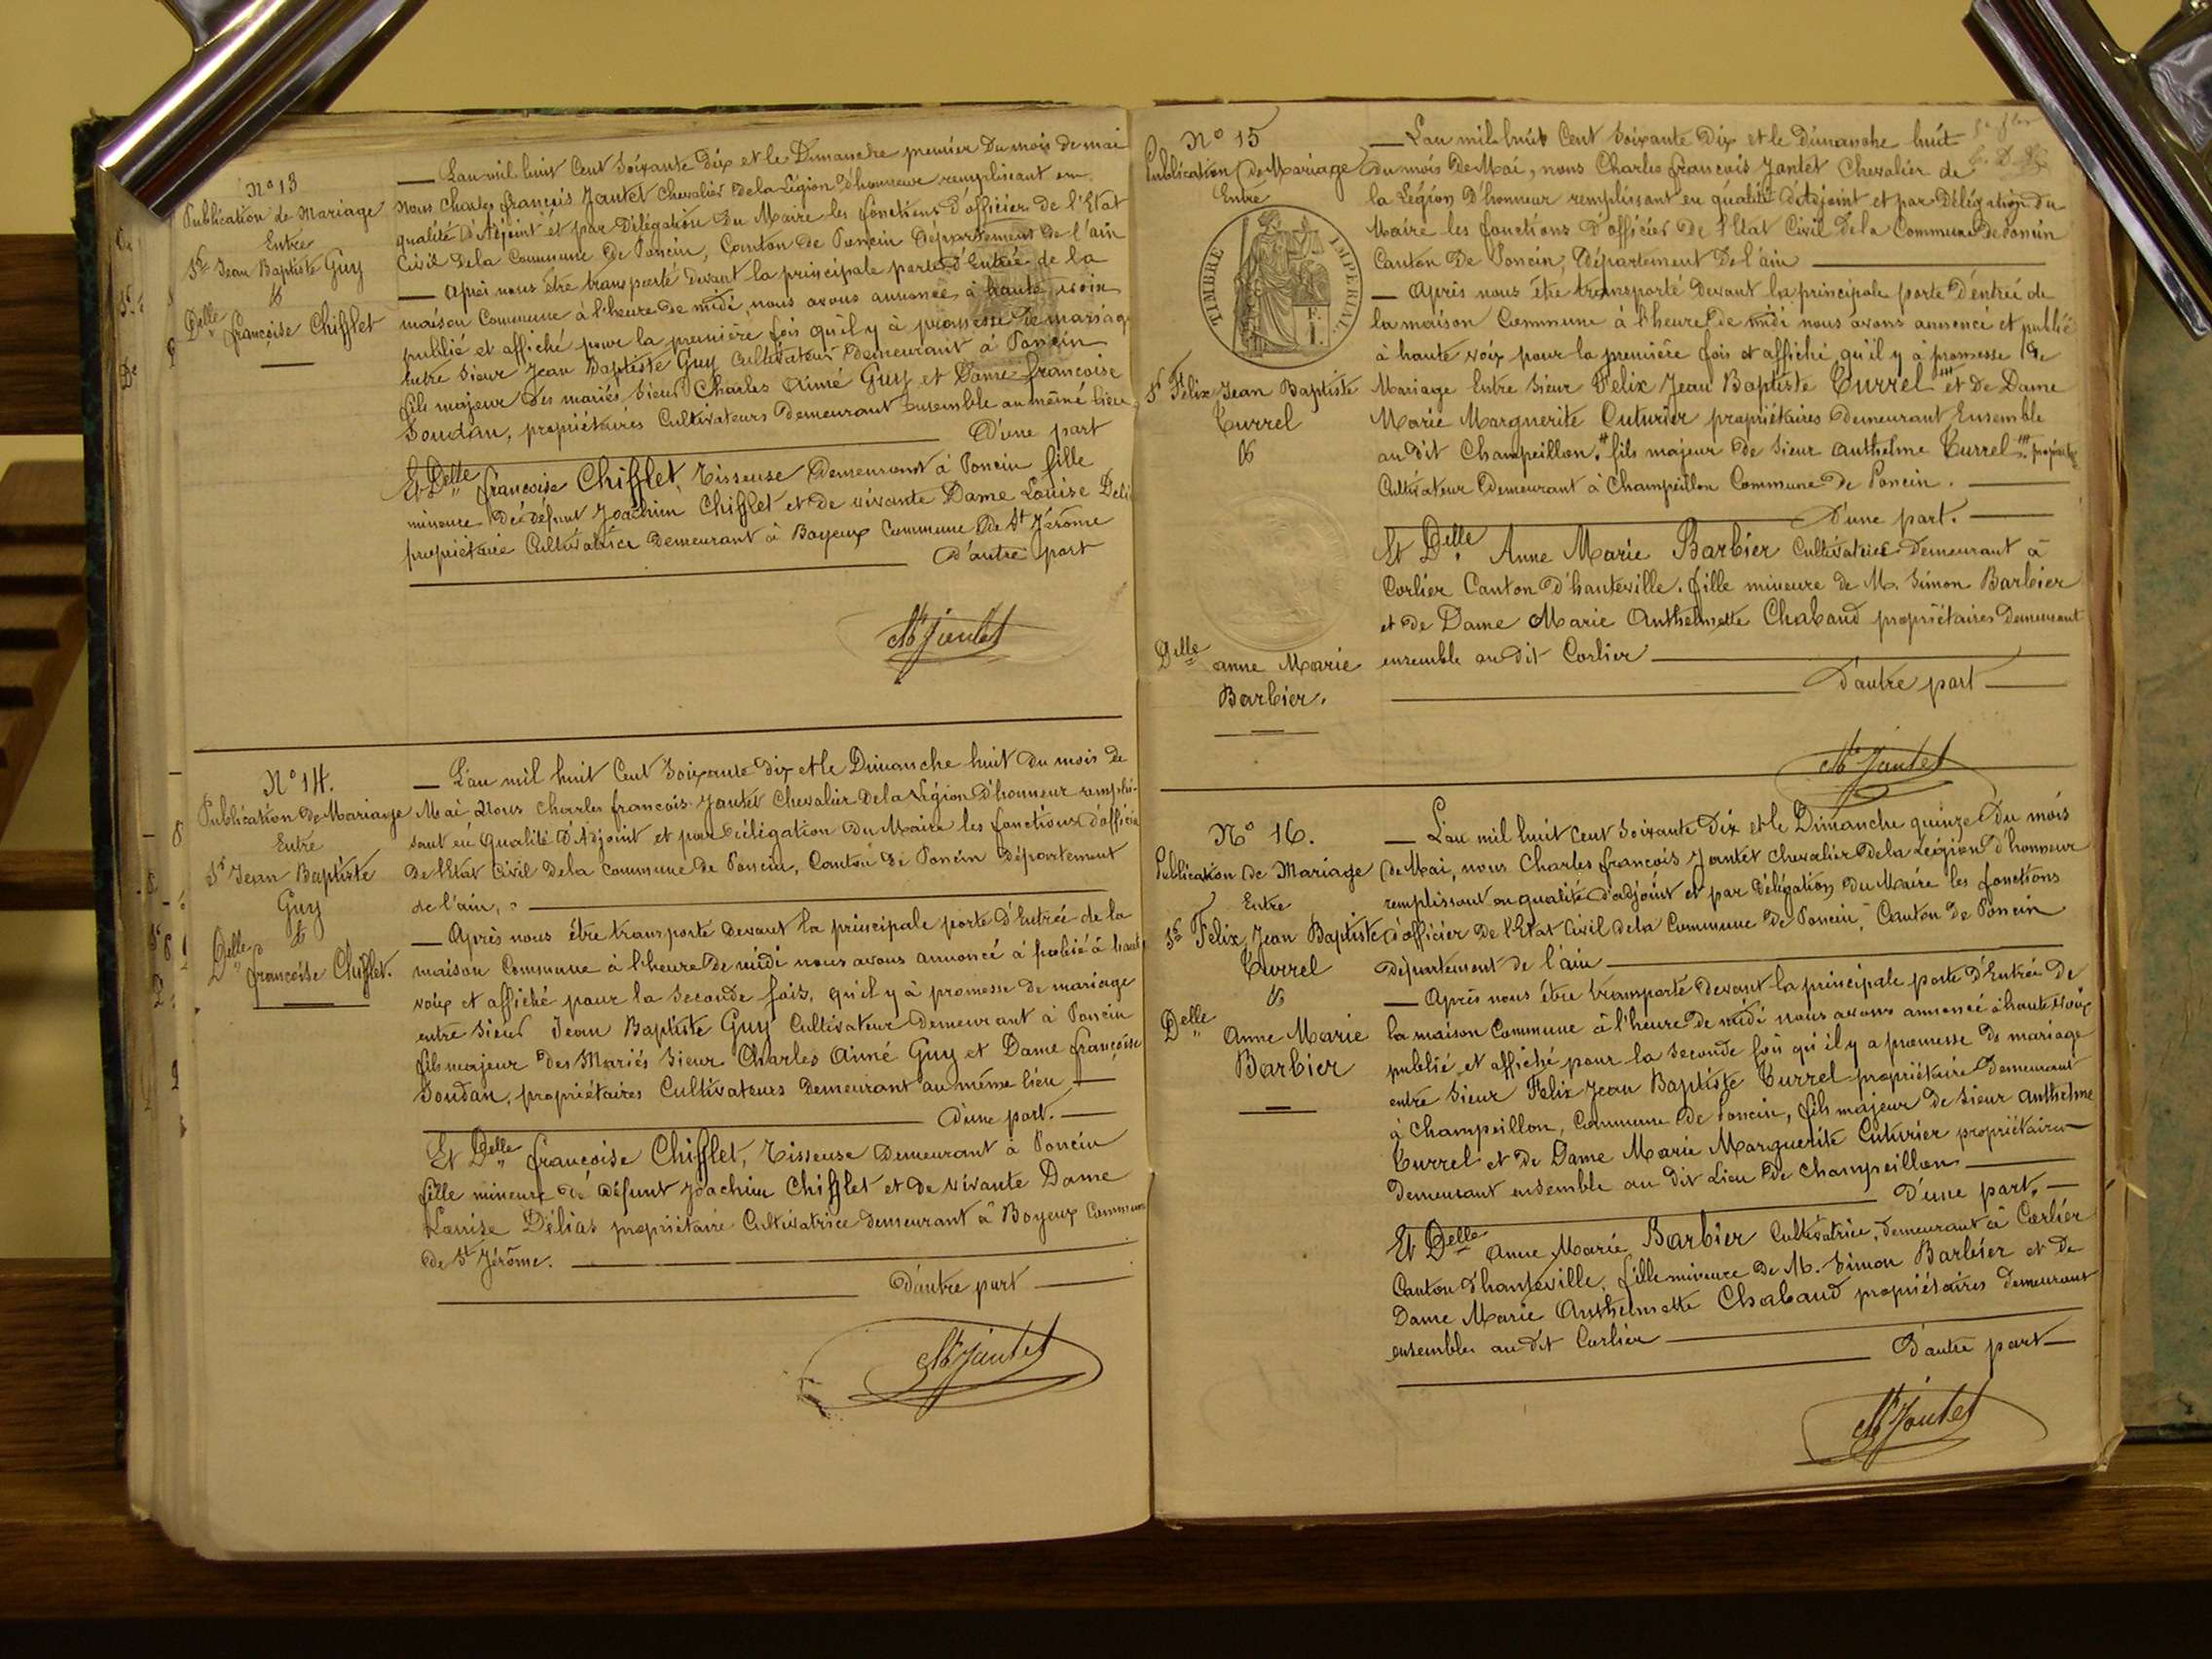 N° 13
Publication de Mariage
Entre
Sr Jean Baptiste Guy
&
Delle françoise Chifflet
— L'an mil huit Cent Soixante dix et le Dimanche premier du mois de mai
Nous Charles françois Jantet Chevalier de la Légion d'honneur remplissant en
qualité d'Adjoint et par Délégation du Maire les fonctions d'officier de l'Etat
Civil de la Commune de Poncin, Canton de Poncin Département de l'ain
— Après nous être transporté devant la principale porte d'Entrée de la
maison Commune à l'heure de midi, nous avons annoncé à haute voix
publié et affiché pour la première fois qu'il y à promesse de mariage
entre Sieur Jean Baptiste Guy Cultivateur demeurant à Poncin
fils majeur des mariés Sieur Charles Aimé Guy et Dame françoise
Soudan, propriétaires Cultivateurs demeurant Ensemble au même lieu
D'une part
Et Delle françoise Chifflet, Tisseuse demeurant à Poncin fille
mineure de défunt Joachim Chifflet et de vivante Dame Louise Deli
propriétaire Cultivatrice demeurant à Boyeux Commune de St Jérôme
D'autre part
Ch Jantet
N° 14.
Publication de Mariage
Entre
Sr Jean Baptiste
Guy
&
Delle françoise Chifflet.
— L'an mil huit Cent Soixante dix et le Dimanche huit du mois de
Mai Nous Charles françois Jantet Chevalier de la Légion d'honneur remplis-
sant en qualité d'Adjoint et par Délégation du Maire les fonctions d'officier
de l'Etat Civil de la Commune de Poncin, Canton de Poncin Département
de l'ain,
— Après nous être transporté devant la principale porte d'Entrée de la
maison Commune à l'heure de midi nous avons annoncé à publié à haute
voix et affiché pour la seconde fois, qu'il y à promesse de mariage
entre Sieur Jean Baptiste Guy Cultivateur demeurant à Poncin
fils majeur des Mariés Sieur Charles Aimé Guy et Dame françoise
Soudan, propriétaires Cultivateurs demeurant au même lieu —
D'une part. —
Et Delle françoise Chifflet, Tisseuse demeurant à Poncin
fille mineure de défunt Joachim Chifflet et de vivante Dame
Louise Délias propriétaire Cultivatrice demeurant à Boyeux Commune
de St Jérôme.
D'autre part —
Ch Jantet
N° 15
Publication de Mariage
Entre
TIMBRE IMPERIAL
Sr Felix Jean Baptiste
Turrel
&
Delle anne Marie
Barbier.
— L'an mil huit Cent Soixante Dix et le Dimanche huit
du mois de Mai, nous Charles françois Jantet Chevalier de
la Légion d'honneur remplissant en qualité d'Adjoint et par Délégation du
Maire les fonctions d'officier de l'Etat Civil de la Commune de Poncin
Canton de Poncin, Département de l'ain —
— Après nous être transporté devant la principale porte d'entrée de
la maison Commune à l'heure de midi nous avons annoncé et publié
à haute voix pour la première fois et affiché qu'il y à promesse de
Mariage Entre Sieur Felix Jean Baptiste Turrel et de Dame
Marie Marguerite Cuturier propriétaires demeurant Ensemble
au dit Champeillon. fils majeur de Sieur anthelme Turrel
Cultivateur demeurant à Champeillon Commune de Poncin. —
D'une part. —
Et Delle Anne Marie Barbier Cultivatrice demeurant à
Corlier Canton d'hauteville. fille mineure de M. Simon Barbier
et de Dame Marie Anthelmette Chabaud propriétaires demeurant
ensemble au dit Corlier —
D'autre part —
Ch Jantet
N° 16.
Publication de Mariage
Entre
Sr Felix Jean Baptiste
Turrel
&
Delle Anne Marie
Barbier
— L'an mil huit Cent Soixante Dix et le Dimanche quinze du mois
de Mai, nous Charles françois Jantet Chevalier de la Légion d'honneur
remplissant en qualité d'adjoint et par Délégation du Maire les fonctions
d'officier de l'Etat Civil de la Commune de Poncin, Canton de Poncin
Département de l'ain —
— Après nous être transporté devant la principale porte d'Entrée de
la maison Commune à l'heure de midi nous avons annoncé à haute voix
publié et affiché pour la seconde fois qu'il y a promesse de mariage
entre Sieur Felix Jean Baptiste Turrel propriétaire demeurant
à Champeillon, Commune de Poncin, fils majeur de Sieur anthelme
Turrel et de Dame Marie Marguerite Cuturier propriétaires
demeurant ensemble au dit Lieu de Champeillon —
D'une part. —
Et Delle Anne Marie Barbier Cultivatrice, demeurant à Corlier
Canton d'hauteville, fille mineure de M. Simon Barbier et de
Dame Marie Anthelmette Chabaud propriétaires demeurant
ensembles au dit Corlier —
D'autre part —
Ch Jantet